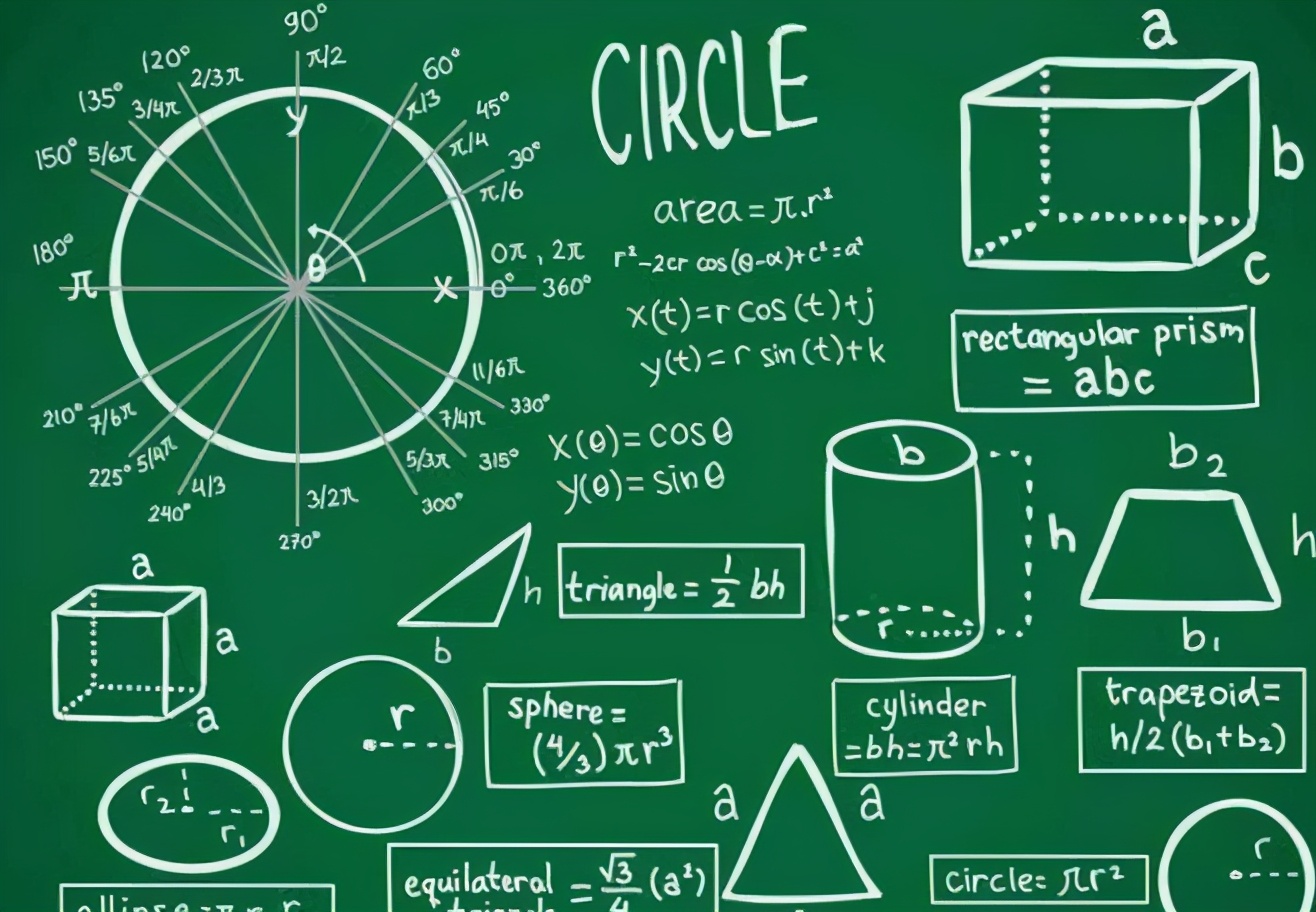 90°
π/2
120°
2/3π
60°
π/3
135°
3/4π
45°
π/4
150°
5/6π
30°
π/6
y
180°
π
θ
x
0π , 2π
0°
360°
11/6π
330°
210°
7/6π
7/4π
315°
225°
5/4π
5/3π
300°
240°
4/3
3/2π
270°
CIRCLE
area = π.r²
r²-2cr cos(θ-α)+c²=a²
x(t)=r cos(t)+j
y(t)=r sin(t)+k
x(θ)=cosθ
y(θ)=sinθ
a
b
c
rectangular prism
= abc
b
h
r
b₂
h
b₁
a
a
a
h
b
triangle= 1/2 bh
r
sphere=
(4/3)πr³
cylinder
=bh=π²rh
trapezoid=
h/2(b₁+b₂)
r₂
r₁
a
a
r
equilateral
triangle
= √3/4 (a²)
circle=πr²
ellipse=π r r